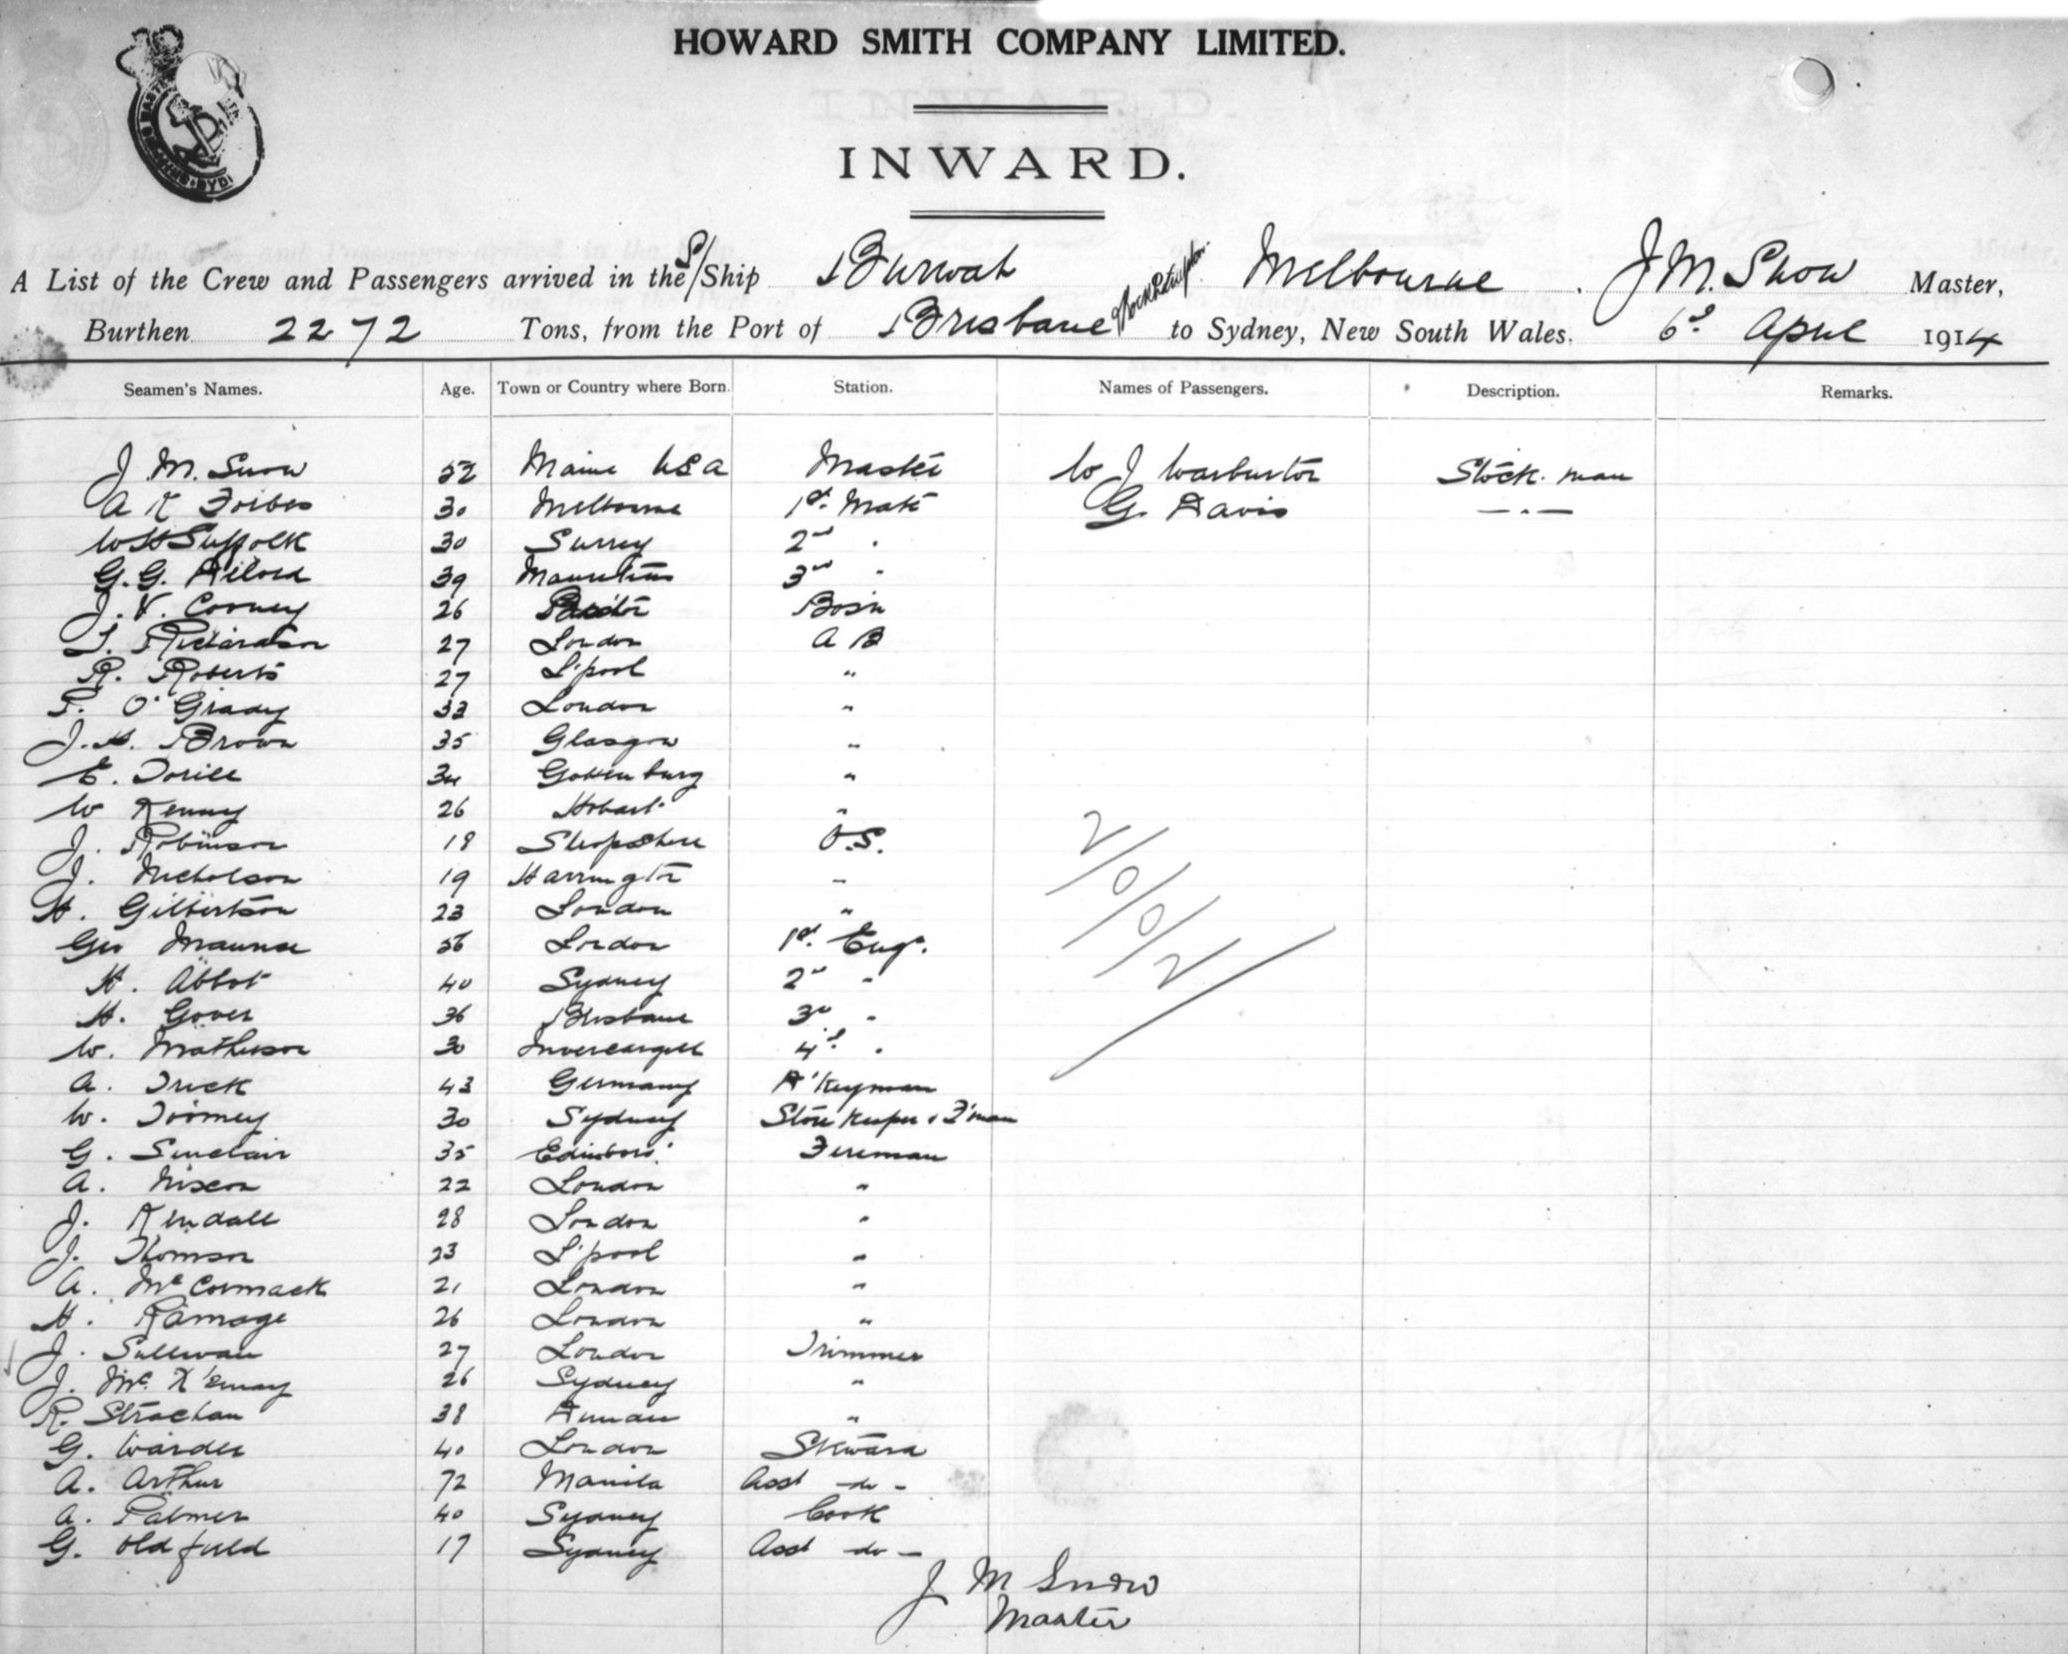 HOWARD SMITH COMPANY LIMITED.
INWARD.
A List of the Crew and Passengers arrived in the S/Ship Burwah Melbourne. J M. Snow Master,
Burthen 2272 Tons, from the Port of Brisbane to Sydney, New South Wales. 6th April 1914
Seamen's Names. Age. Town or Country where Born. Station. Names of Passengers. Description. Remarks.
J. M. Snow 52 Maine USA Master W J Warburton Stock man
A K Forbes 30 Melbourne 1st. Mate G. Davis — . —
W H Suffolk 30 Surrey 2nd "
G. G. 39 Mauritius 3rd "
J. V. Cooney 26 Bos'n
T. Richardson 27 London A B
R. Roberts 27 L'pool "
P. O'Grady 33 London "
J. H. Brown 35 Glasgow "
E. 34 Gottenburg "
W Kenny 26 Hobart "
J. Robinson 18 Shropshire O.S.
J. Nicholson 19 Harrington "
H. Gilbertson 23 London "
Geo Maunce 56 London 1st. Engr.
H. Abbot 40 Sydney 2nd "
H. Gover 36 Brisbane 3rd "
W. Matheson 30 Invercargill 4th "
A. Truck 43 Germany D'keyman
W. Toomey 30 Sydney Store keeper & F'man
G. Sinclair 35 Edinboro' Fireman
A. Nixon 22 London "
J. Kendall 28 London "
J. Thomson 23 L'pool "
A. McCormack 21 London "
H. Ramage 26 London "
J. Sullivan 27 London Trimmer
J. Mc 26 Sydney "
R. Strachan 38 Dundee "
G. Warder 40 London Steward
A. Arthur 72 Manila Asst -do-
A. Palmer 40 Sydney Cook
G. Oldfield 17 Sydney Asst -do-
2/0/0/2/
J M Snow
Master